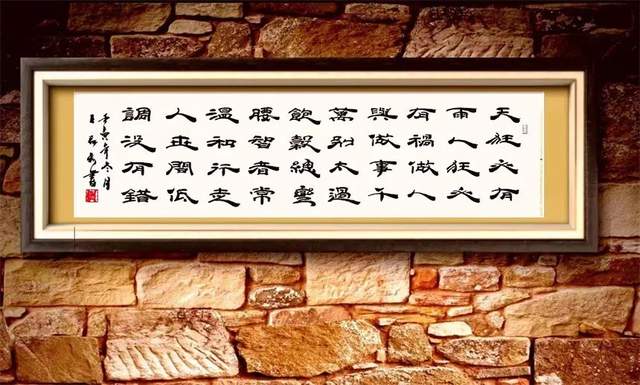 天狂必有
雨人狂必
有禍做人
與做事千
萬别太過
飽穀總彎
腰智者常
溫和行走
人世間低
調没有錯
壬寅年冬月
王
書